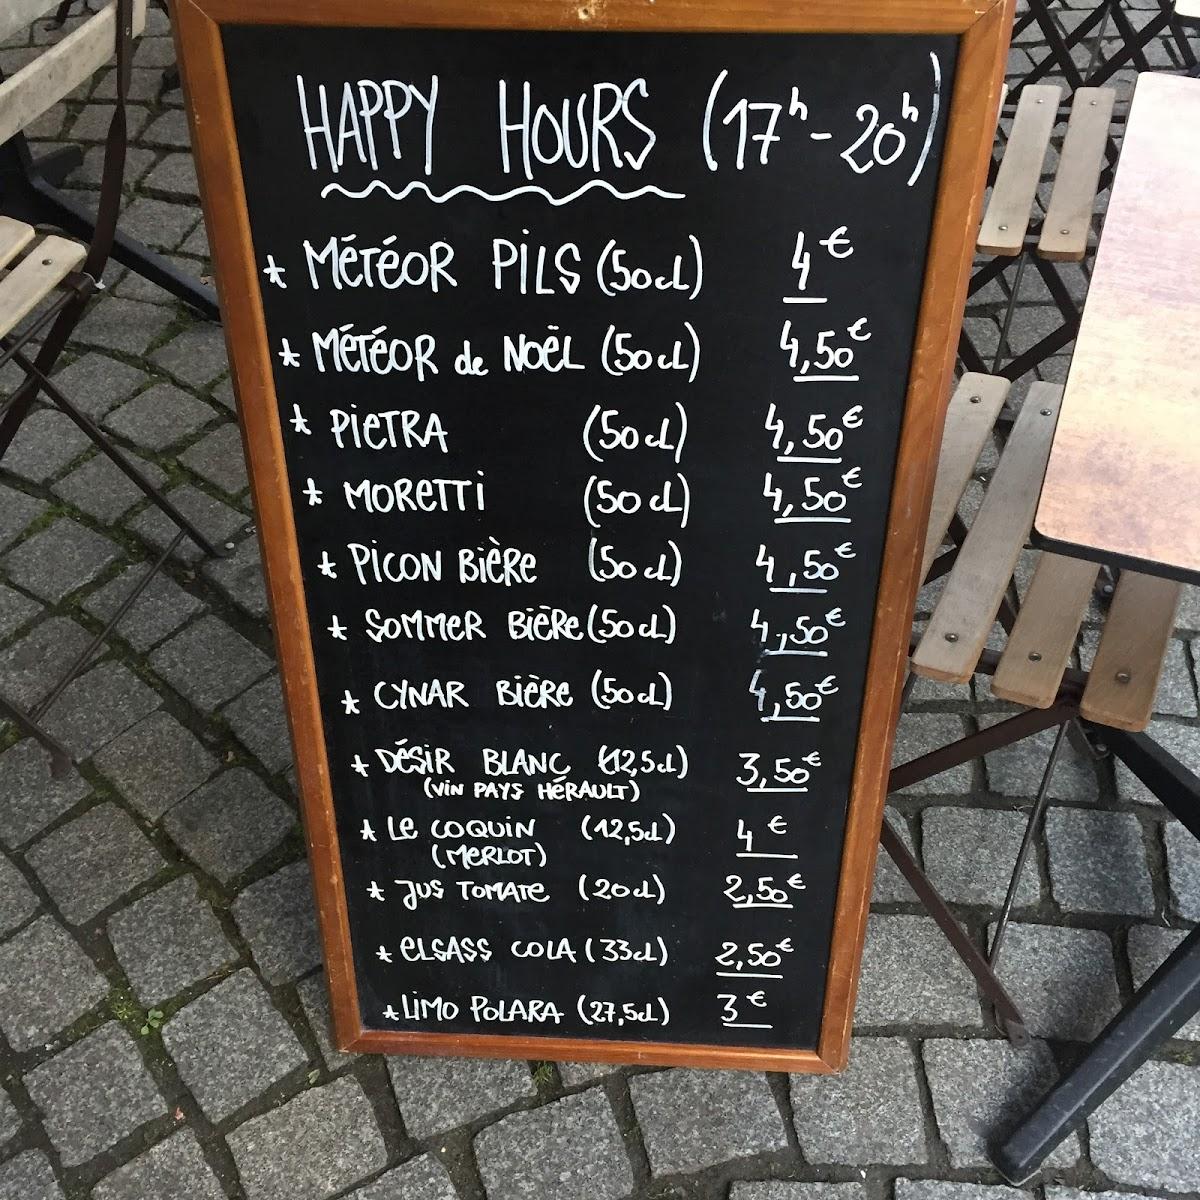 HAPPY HOURS (17h - 20h)
* MÉTÉOR PILS (50cl) 4€
* MÉTÉOR de NOËL (50cl) 4,50€
* PIETRA (50cl) 4,50€
* MORETTI (50cl) 4,50€
* PICON BIÈRE (50cl) 4,50€
* SOMMER BIÈRE (50cl) 4,50€
* CYNAR BIÈRE (50cl) 4,50€
* DÉSIR BLANC (12,5cl) 3,50€
(VIN PAYS HÉRAULT)
* LE COQUIN (12,5cl) 4€
(MERLOT)
* JUS TOMATE (20cl) 2,50€
* ELSASS COLA (33cl) 2,50€
* LIMO POLARA (27,5cl) 3€